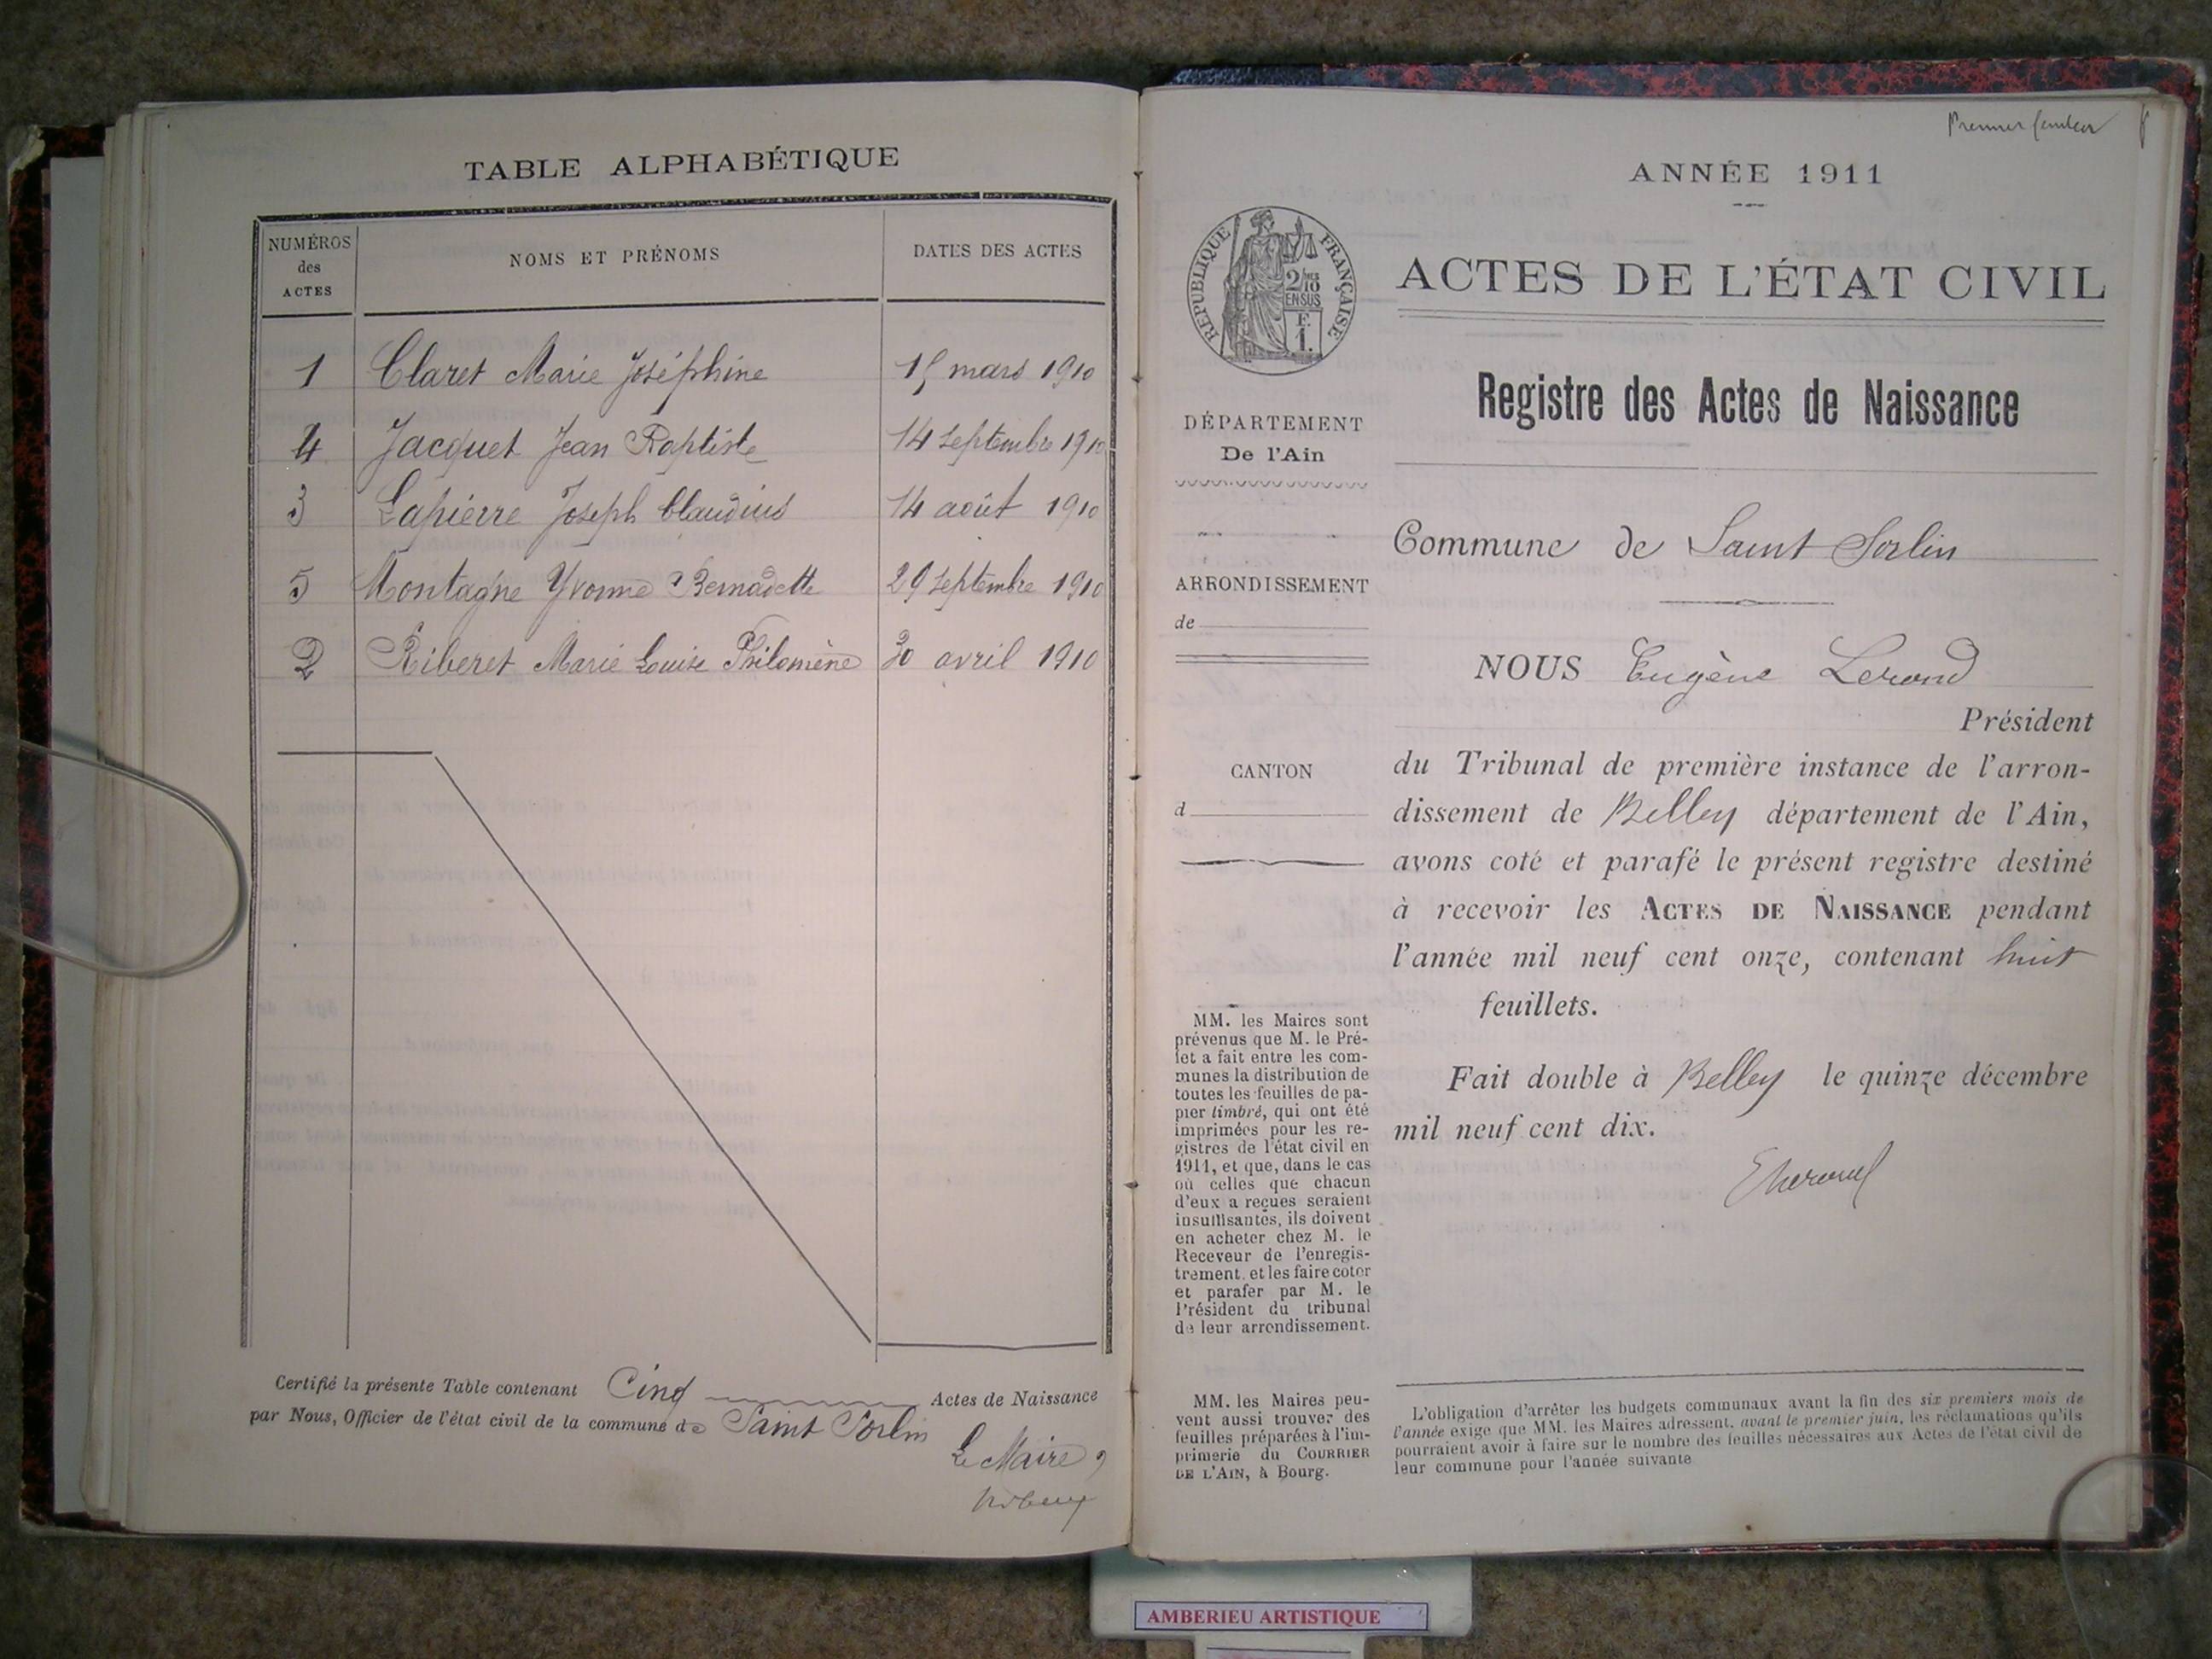 TABLE ALPHABÉTIQUE
NUMÉROS des ACTES
NOMS ET PRÉNOMS
DATES DES ACTES
1 Claret Marie Joséphine 15 mars 1910
4 Jacquet Jean Baptiste 14 septembre 1910
3 Lapierre Joseph Claudius 14 août 1910
5 Montagne Yvonne Bernadette 29 septembre 1910
2 Riberet Marie Louise Philomène 30 avril 1910
Certifié la présente Table contenant Cinq Actes de Naissance
par Nous, Officier de l'état civil de la commune de Saint Sorlin
Le Maire,
Premier
ANNÉE 1911
RÉPUBLIQUE FRANÇAISE
2/10
EN SUS
F.
1.
ACTES DE L'ÉTAT CIVIL
Registre des Actes de Naissance
DÉPARTEMENT
De l'Ain
ARRONDISSEMENT
de
CANTON
d
MM. les Maires sont
prévenus que M. le Pré-
fet a fait entre les com-
munes la distribution de
toutes les feuilles de pa-
pier timbré, qui ont été
imprimées pour les re-
gistres de l'état civil en
1911, et que, dans le cas
où celles que chacun
d'eux a reçues seraient
insuffisantes, ils doivent
en acheter chez M. le
Receveur de l'enregis-
trement, et les faire coter
et parafer par M. le
Président du tribunal
de leur arrondissement.
MM. les Maires peu-
vent aussi trouver des
feuilles préparées à l'im-
primerie du COURRIER
DE L'AIN, à Bourg.
Commune de Saint Sorlin
NOUS Eugène Lerond
Président
du Tribunal de première instance de l'arron-
dissement de Belley département de l'Ain,
avons coté et parafé le présent registre destiné
à recevoir les ACTES DE NAISSANCE pendant
l'année mil neuf cent onze, contenant huit
feuillets.
Fait double à Belley le quinze décembre
mil neuf cent dix.
L'obligation d'arrêter les budgets communaux avant la fin des six premiers mois de
l'année exige que MM. les Maires adressent, avant le premier juin, les réclamations qu'ils
pourraient avoir à faire sur le nombre des feuilles nécessaires aux Actes de l'état civil de
leur commune pour l'année suivante
AMBERIEU ARTISTIQUE